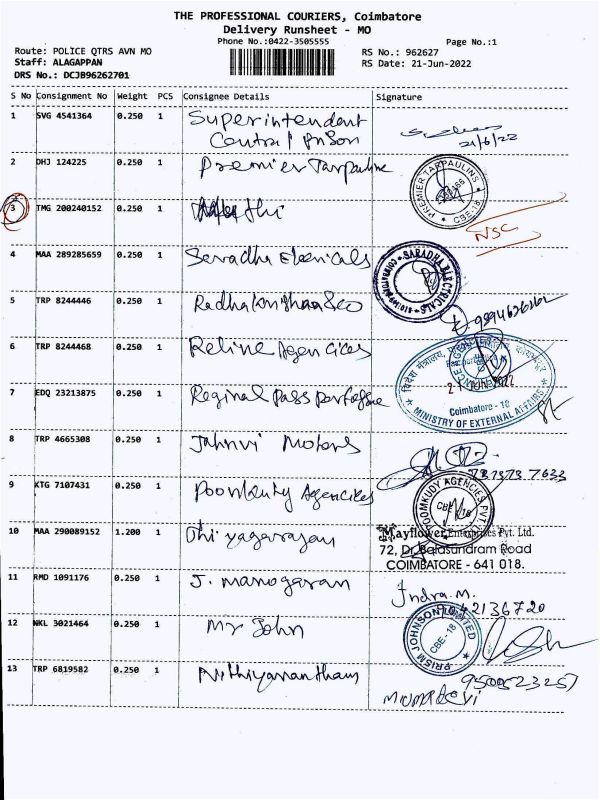 THE PROFESSIONAL COURIERS, Coimbatore
Delivery Runsheet - MO
Phone No.:0422-3505555
Page No.:1
Route: POLICE QTRS AVN MO
RS No.: 962627
Staff: ALAGAPPAN
RS Date: 21-Jun-2022
DRS No.: DCJB96262701
S No Consignment No Weight PCS Consignee Details Signature
1 SVG 4541364 0.250 1 Superintendent
Central Prison
21/6/22
2 DHJ 124225 0.250 1 Premier Tarpauline
PREMIER TARPAULINS
CBE-18
3 TMG 200240152 0.250 1
NSC
4 MAA 289285659 0.250 1 Saradha Elecricals
SARADHA ELECTRICALS
5 TRP 8244446 0.250 1 Radhakrishnan & co
6 TRP 8244468 0.250 1 Reline Agencies
7 EDQ 23213875 0.250 1 Reginal Pass Portoffice
21 JUN 2022
Coimbatore - 18
MINISTRY OF EXTERNAL AFFAIRS
8 TRP 4665308 0.250 1 Jahnvi Motors
9 KTG 7107431 0.250 1 Poomkudy Agencies
POOMKUDY AGENCIES PVT.
CBE-18
10 MAA 290089152 1.200 1 Thiyagarajan
Mayflower Enterprises Pvt. Ltd.
72, Dr. Balasundram Road
COIMBATORE - 641 018.
11 RMD 1091176 0.250 1 J. Manogaran
Indra.M.
12 NKL 3021464 0.250 1 Mr John
PRISM JOHNSON LIMITED
CBE-18
13 TRP 6819582 0.250 1 Nithiyanantham
9500523257